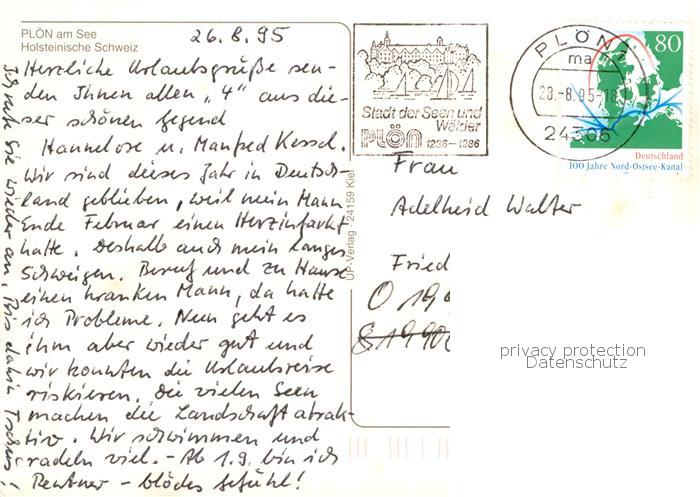 PLÖN am See
Holsteinische Schweiz
26.8.95
Herzliche Urlaubsgrüße sen-
den Ihnen allen „4" aus die-
ser schönen Gegend
Hannelore u. Manfred Kessel.
Wir sind dieses Jahr in Deutsch-
land geblieben, weil mein Mann
Ende Februar einen Herzinfarkt
hatte. Deshalb auch mein langes
Schweigen. Beruf und zu Hause
einen kranken Mann, da hatte
ich Probleme. Nun geht es
ihm aber wieder gut und
wir konnten die Urlaubsreise
riskieren. Die vielen Seen
machen die Landschaft attrak-
tiv. Wir schwimmen und
radeln viel. - Ab 1.9. bin ich
Rentner - blödes Gefühl!
Sie wieder an. Bis dahin Tschüs!
UP-Verlag · 24159 Kiel
Stadt der Seen und
Wälder
PLÖN 1236-1986
PLÖN 1
ma
28.-8.95-18
24306
80
Deutschland
100 Jahre Nord-Ostsee-Kanal
Frau
Adelheid Walter
Fried
O 19
privacy protection
Datenschutz